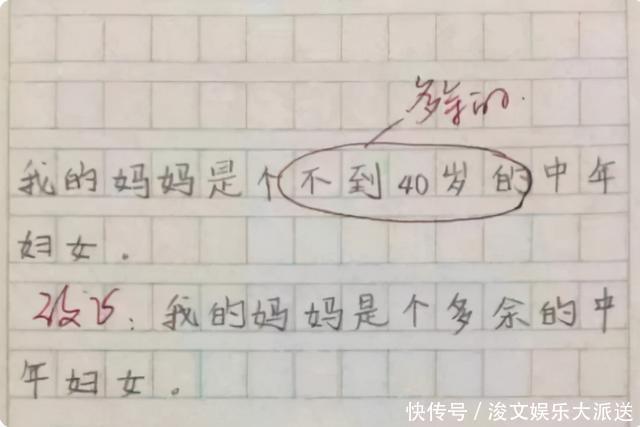 多余的.
我的妈妈是个不到40岁的中年
妇女.
改为:我的妈妈是个多余的中
年妇女。
快传号/浚文娱乐大派送